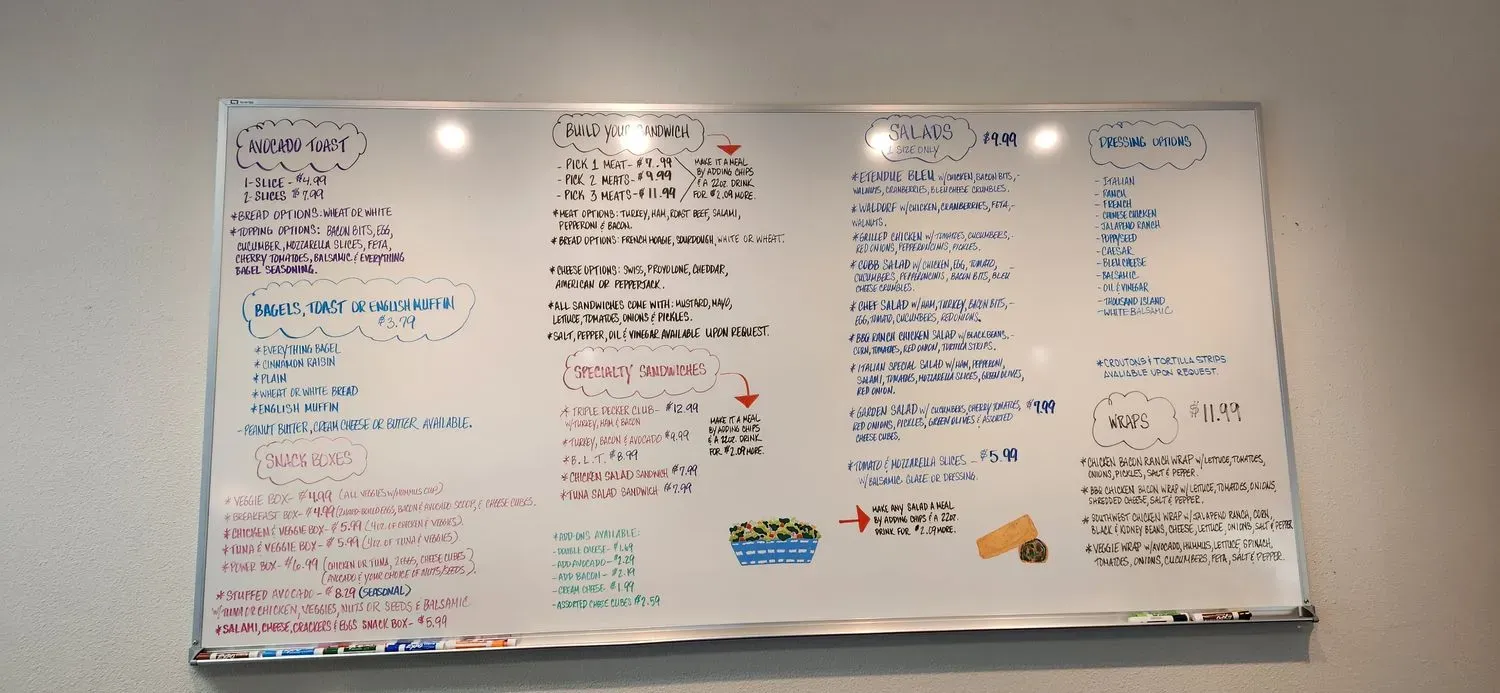 AVOCADO TOAST
1-SLICE - $4.99
2-SLICES $7.99
*BREAD OPTIONS: WHEAT OR WHITE
*TOPPING OPTIONS: BACON BITS, EGG,
CUCUMBER, MOZZARELLA SLICES, FETA,
CHERRY TOMATOES, BALSAMIC & EVERYTHING
BAGEL SEASONING.
BAGELS, TOAST OR ENGLISH MUFFIN
$3.79
*EVERYTHING BAGEL
*CINNAMON RAISIN
*PLAIN
*WHEAT OR WHITE BREAD
*ENGLISH MUFFIN
-PEANUT BUTTER, CREAM CHEESE OR BUTTER AVAILABLE.
SNACK BOXES
*VEGGIE BOX- $4.99 (ALL VEGGIES W/HUMMUS CUP)
*BREAKFAST BOX- $4.99 (2 HARD-BOILED EGGS, BACON & AVOCADO SCOOP, & CHEESE CUBES.
*CHICKEN & VEGGIE BOX- $5.99 (4OZ. OF CHICKEN & VEGGIES).
*TUNA & VEGGIE BOX- $5.99 (4OZ OF TUNA & VEGGIES).
*POWER BOX- $6.99 (CHICKEN OR TUNA, 2 EGGS, CHEESE CUBES
AVOCADO & YOUR CHOICE OF NUTS/SEEDS).
*STUFFED AVOCADO- $8.29 (SEASONAL)
W/TUNA OR CHICKEN, VEGGIES, NUTS OR SEEDS & BALSAMIC
*SALAMI, CHEESE, CRACKERS & EGGS SNACK BOX- $5.99
BUILD YOUR SANDWICH
- PICK 1 MEAT- $7.99
- PICK 2 MEATS- $9.99
- PICK 3 MEATS- $11.99
MAKE IT A MEAL
BY ADDING CHIPS
& A 22OZ. DRINK
FOR $2.09 MORE.
*MEAT OPTIONS: TURKEY, HAM, ROAST BEEF, SALAMI,
PEPPERONI & BACON.
*BREAD OPTIONS: FRENCH HOAGIE, SOURDOUGH, WHITE OR WHEAT.
*CHEESE OPTIONS: SWISS, PROVOLONE, CHEDDAR,
AMERICAN OR PEPPERJACK.
*ALL SANDWICHES COME WITH: MUSTARD, MAYO,
LETTUCE, TOMATOES, ONIONS & PICKLES.
*SALT, PEPPER, OIL & VINEGAR AVAILABLE UPON REQUEST.
SPECIALTY SANDWICHES
*TRIPLE DECKER CLUB- $12.99
W/TURKEY, HAM & BACON
*TURKEY, BACON & AVOCADO $9.99
*B.L.T. $8.99
*CHICKEN SALAD SANDWICH $7.99
*TUNA SALAD SANDWICH $7.99
MAKE IT A MEAL
BY ADDING CHIPS
& A 22OZ. DRINK
FOR $2.09 MORE.
*ADD-ONS AVAILABLE:
-DOUBLE CHEESE- $1.69
-ADD AVOCADO- $2.29
-ADD BACON- $2.19
-CREAM CHEESE- $1.99
-ASSORTED CHEESE CUBES $2.59
SALADS
1 SIZE ONLY
$9.99
*ETENDUE BLEU W/CHICKEN, BACON BITS,-
WALNUTS, CRANBERRIES, BLEU CHEESE CRUMBLES.
*WALDORF W/CHICKEN, CRANBERRIES, FETA,-
WALNUTS.
*GRILLED CHICKEN W/TOMATOES, CUCUMBERS,-
RED ONIONS, PEPPERONCINIS, PICKLES.
*COBB SALAD W/CHICKEN, EGG, TOMATO,-
CUCUMBERS, PEPPERONCINIS, BACON BITS, BLEU
CHEESE CRUMBLES.
*CHEF SALAD W/HAM, TURKEY, BACON BITS,-
EGG, TOMATO, CUCUMBERS, RED ONIONS.
*BBQ RANCH CHICKEN SALAD W/BLACK BEANS,-
CORN, TOMATOES, RED ONION, TORTILLA STRIPS.
*ITALIAN SPECIAL SALAD W/HAM, PEPPERONI,
SALAMI, TOMATOES, MOZZARELLA SLICES, GREEN OLIVES,
RED ONION.
*GARDEN SALAD W/CUCUMBERS, CHERRY TOMATOES, $7.99
RED ONIONS, PICKLES, GREEN OLIVES & ASSORTED
CHEESE CUBES.
*TOMATO & MOZZARELLA SLICES - $5.99
W/BALSAMIC GLAZE OR DRESSING.
MAKE ANY SALAD A MEAL
BY ADDING CHIPS & A 22OZ.
DRINK FOR $2.09 MORE.
DRESSING OPTIONS
- ITALIAN
- RANCH
- FRENCH
- CHINESE CHICKEN
- JALAPENO RANCH
- POPPYSEED
- CAESAR
- BLEU CHEESE
- BALSAMIC
- OIL & VINEGAR
- THOUSAND ISLAND
- WHITE BALSAMIC
*CROUTONS & TORTILLA STRIPS
AVALIABLE UPON REQUEST.
WRAPS
$11.99
*CHICKEN BACON RANCH WRAP W/LETTUCE, TOMATOES,
ONIONS, PICKLES, SALT & PEPPER.
*BBQ CHICKEN BACON WRAP W/LETTUCE, TOMATOES, ONIONS,
SHREDDED CHEESE, SALT & PEPPER.
*SOUTHWEST CHICKEN WRAP W/JALAPENO RANCH, CORN,
BLACK & KIDNEY BEANS, CHEESE, LETTUCE, ONIONS SALT & PEPPER
*VEGGIE WRAP W/AVOCADO, HUMMUS, LETTUCE, SPINACH,
TOMATOES, ONIONS, CUCUMBERS, FETA, SALT & PEPPER.